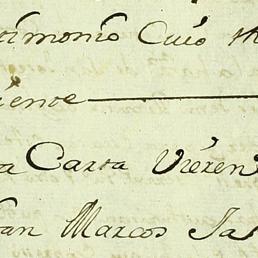 timonio Cuio
iente
a Carta Vieren
an Marcos Ja